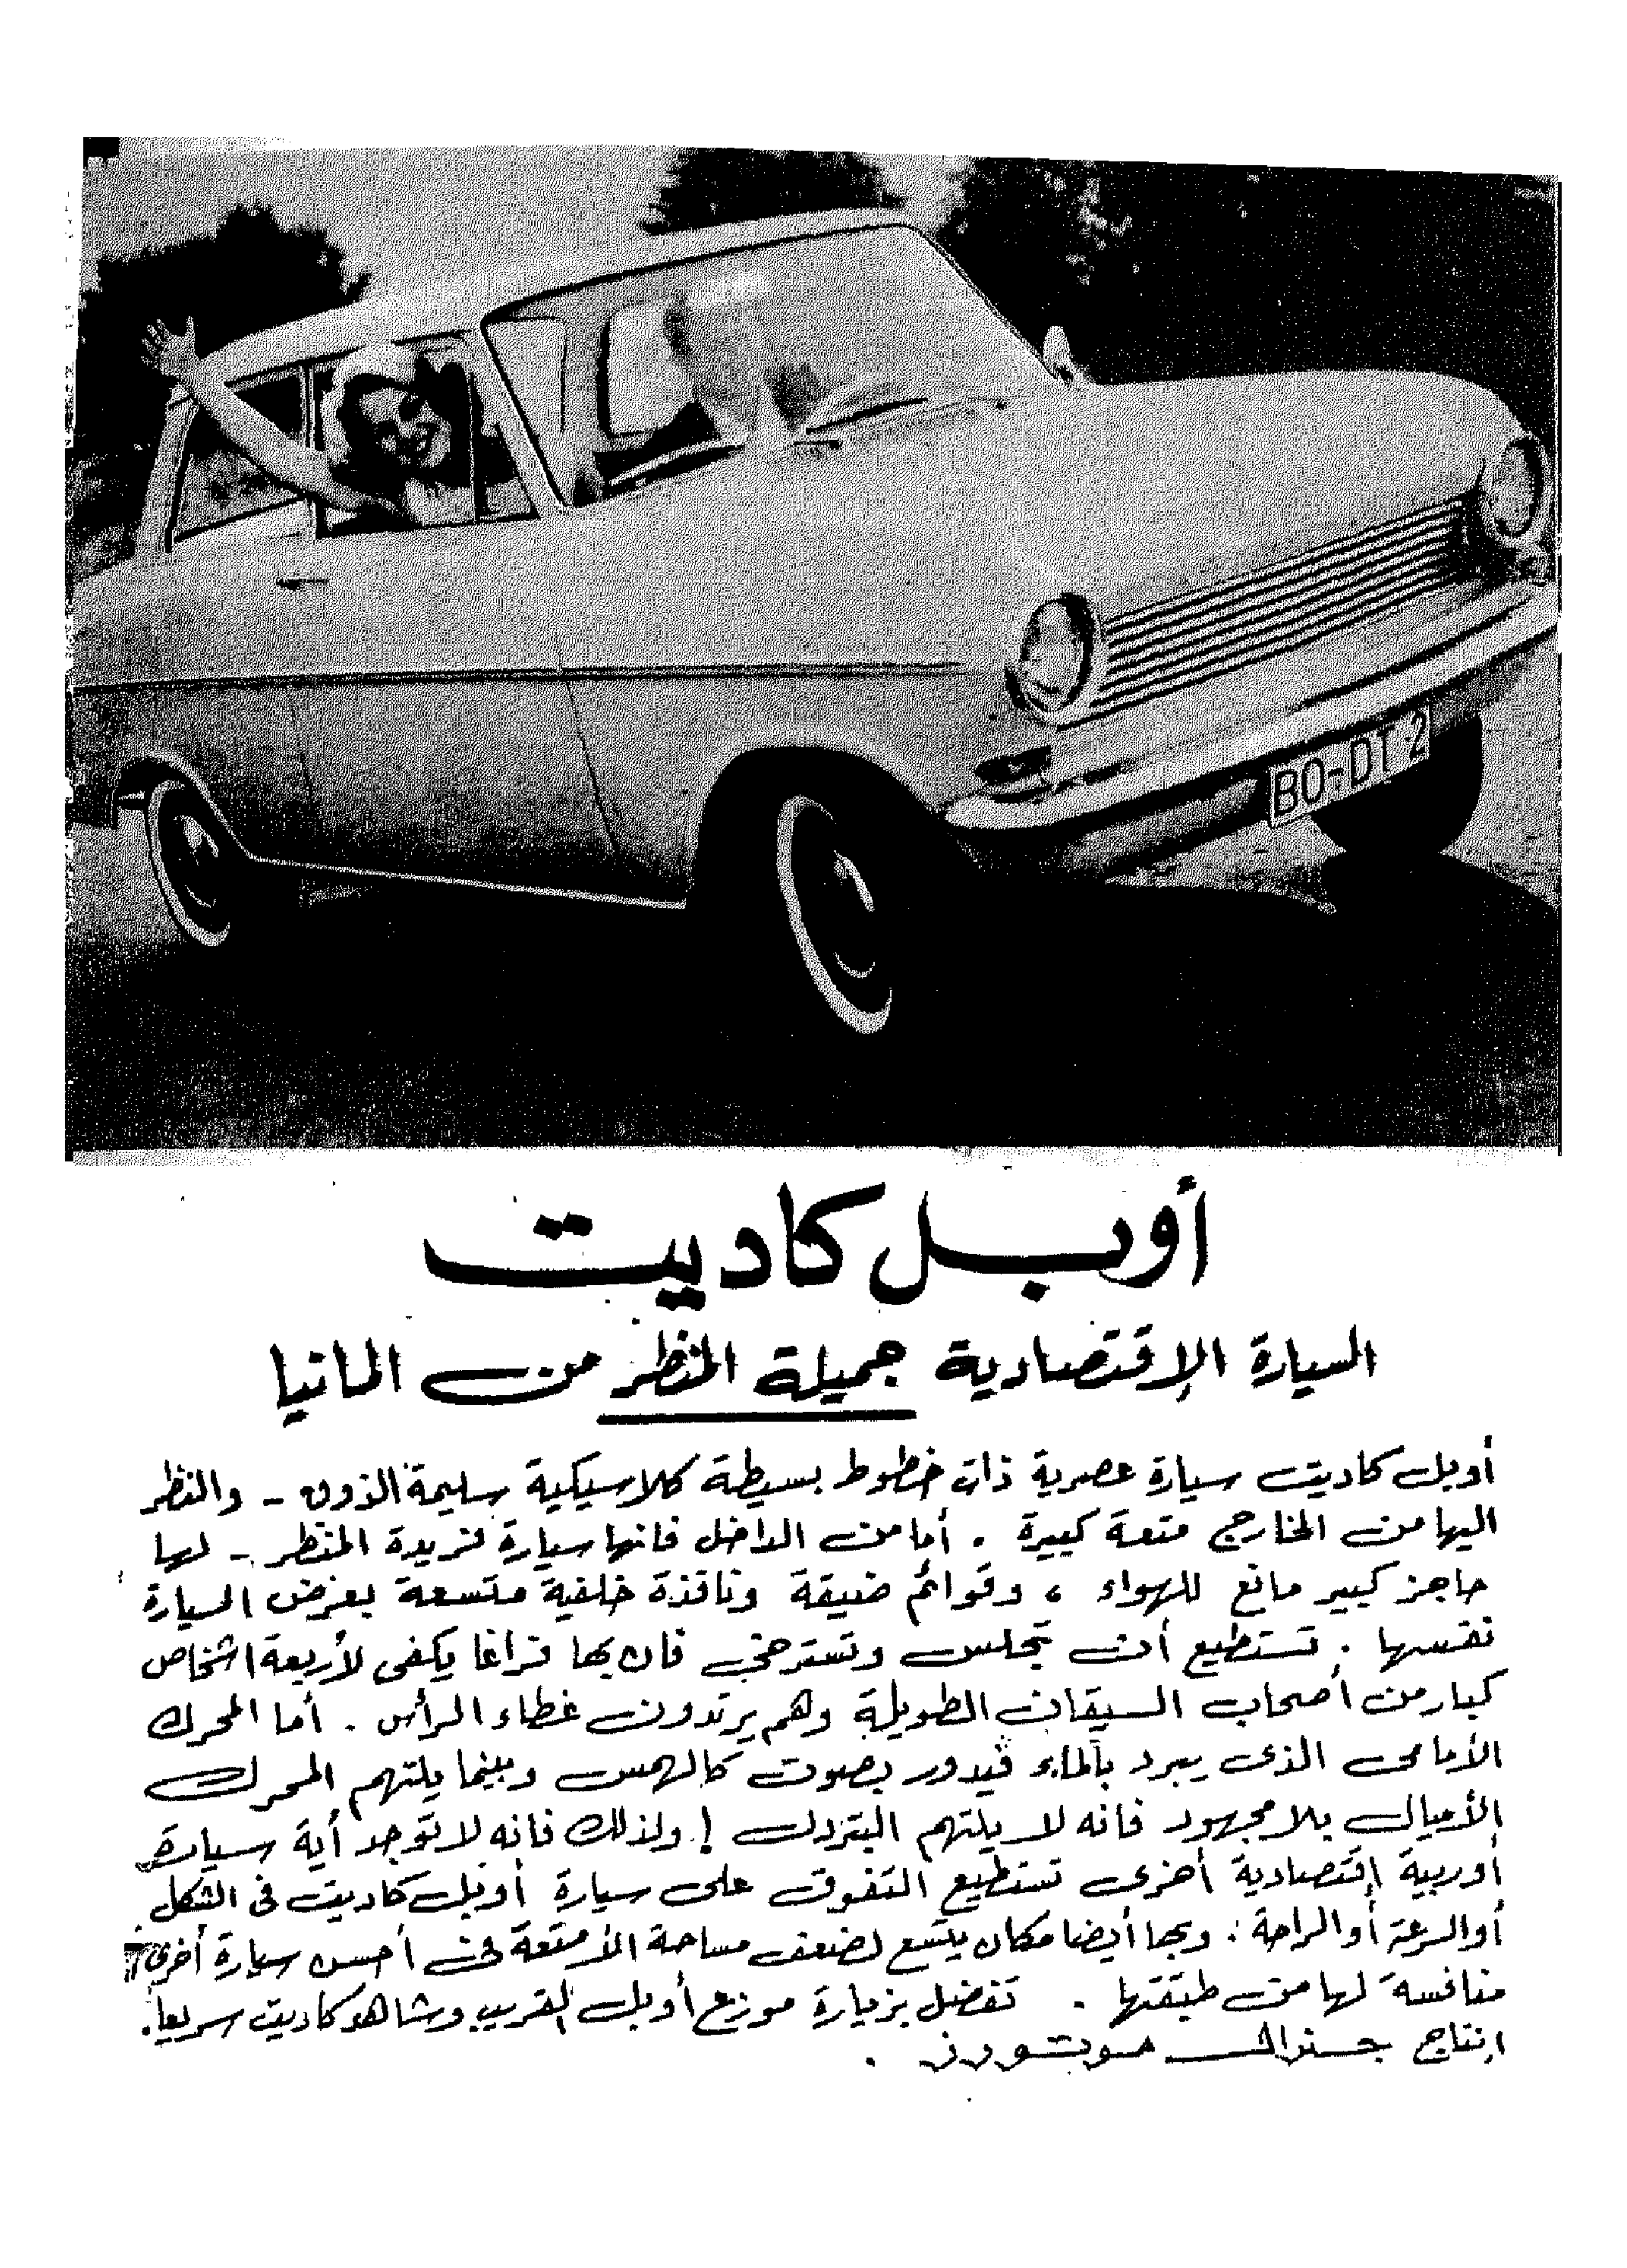 BO-DT 2
أوبل كاديت
السيارة الإقتصادية جميلة المنظر من المانيا
أوبل كاديت سيارة عصرية ذات خطوط بسيطة كلاسيكية سليمة الذوق - والنظر
اليها من الخارج متعة كبيرة . أما من الداخل فانها سيارة فريدة المنظر - لها
حاجز كبير مانع للهواء ، وقوائم ضيقة ونافذة خلفية متسعة بعرض السيارة
نفسها . تستطيع أن تجلس وتسترخي فان بها فراغا يكفى لأربعة اشخاص
كبار من أصحاب السيقان الطويلة وهم يرتدون غطاء الرأس . أما المحرك
الأمامى الذى يبرد بالماء فيدور بصوت كالهمس وبينما يلتهم المحرك
الأميال بلا مجهود فانه لا يلتهم البترول ! ولذلك فانه لا توجد أية سيارة
أوربية إقتصادية أخرى تستطيع التفوق على سيارة أوبل كاديت فى الشكل
أو السرعة أو الراحة . وبها أيضا مكان يتسع لضعف مساحة الأمتعة فى أحسن سيارة أخرى
منافسة لها من طبقتها . تفضل بزيارة موزع أوبل القريب وشاهد كاديت سريعا .
إنتاج جنرال موتورز .